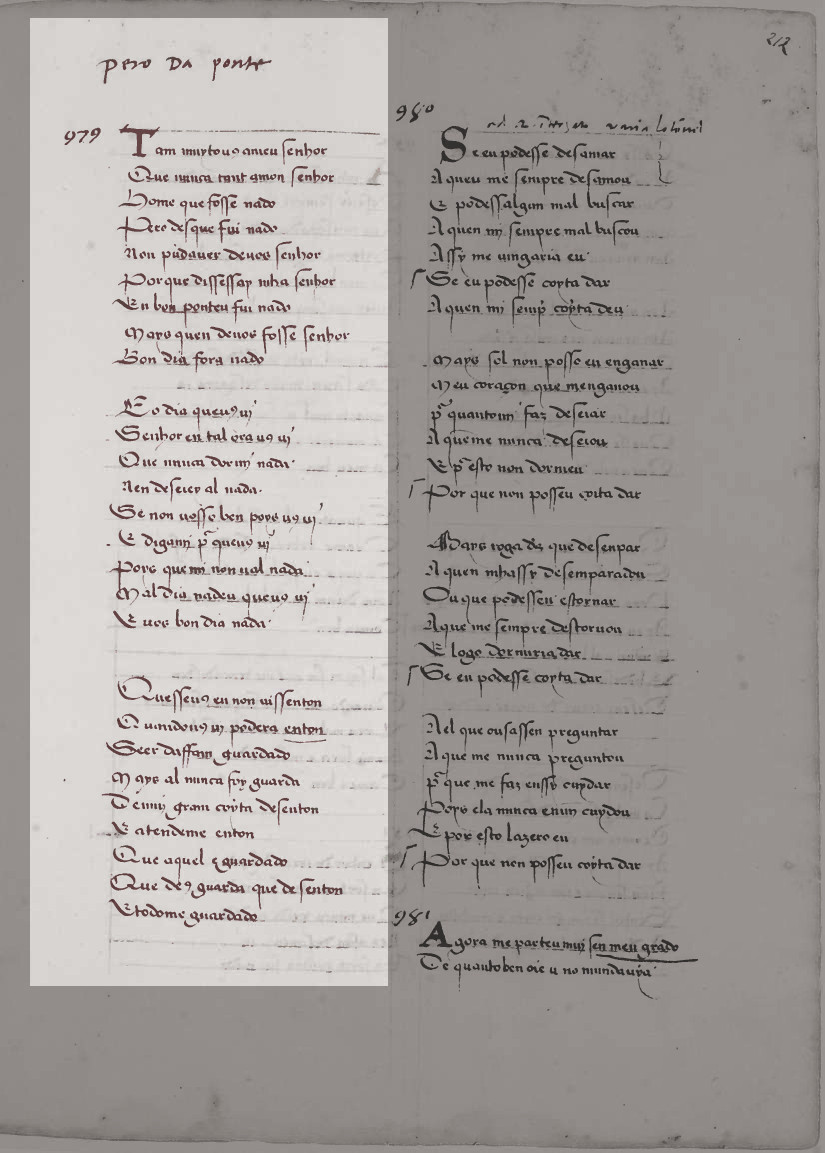 Pero da ponte
979
Tam muytou9 ameu senhor
Que nunca tant amou senhor
Home que fosse nado
Pero des que fui nado
Non pudauer deuos senhor
Por que dissessay mha senhor
En bon ponteu fui nado
Mays quen deuos fosse senhor
Bon dia fora nado
Eo dia queu9 ui
Senhor en tal ora u9 ui
Que nunca dormi nada
Nen deseiey al nada
Se non uosso ben poys u9 ui
E digami pr queu9 ui
Poys que mi non ual nada
Mal dia nadeu queu9 ui
E uos bon dia nada
Quesseu9 eu non uissenton
Quandou9 ui podera enton
Seer daffam guardado
Mays al nunca fuy guarda
De muy gram coyta desenton
E atendeme enton
Que aquel e guardado
Que de9 guarda que desenton
E todome guardado
980
Se eu podesse desamar
A queu me sempre desamou
E podessalgun mal buscar
A quen mi sempre mal buscou
Assy me uingaria eu
Se eu podesse coyta dar
A quen mi semp coyta deu
Mays sol non posso eu enganar
Meu coraçon que menganou
pr quantomi faz deseiar
A queme nunca deseiou
E pr esto non dormeu
Por que non posseu coita dar
Mays roga ds que desenpar
A quen mhassy desemparadou
Ou que podesseu estornar
A que me sempre destoruou
E logo dormiria dar
Se eu podesse coyta dar
Nel que ousassen preguntar
A que me nunca preguntou
pr que me faz enssy cuydar
Poys ela nunca enmi cuydou
E por esto lazero eu
Por que non posseu coyta dar
981
Agora me parteu mui sen meu grado
De quanto ben oie u no mundauya
212